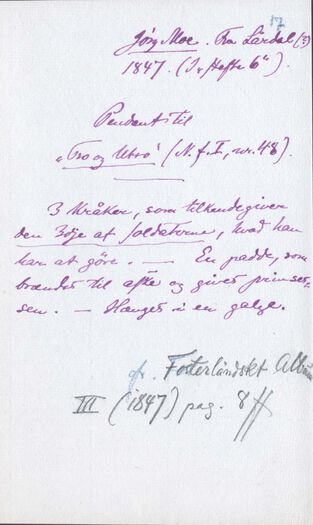 17
Jørg Moe. Fra Lärdal (?)
1847. (I "Hefte 6").
Pendent til
"Tro og Utro" (N.f.I, nr. 48).
3 Kråker, som tilkendegiver
den 3dje af soldaterne, hvad han
har at göre. — En padde, som
brændes til aske og gives prinses-
sen. — Hænges i en galge.
cfr. Fosterländskt Album
III (1847) pag. 8 ff